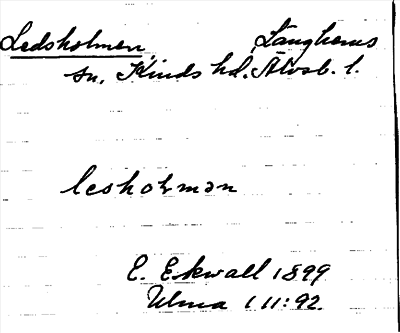 Ledsholmen, Länghems
sn, Kinds hd, Älvsb. l.
lesholmən
E. Ekwall 1899
Ulma 111:92.